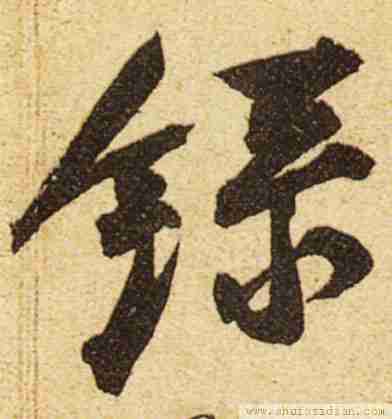 録
www.shufazidian.com